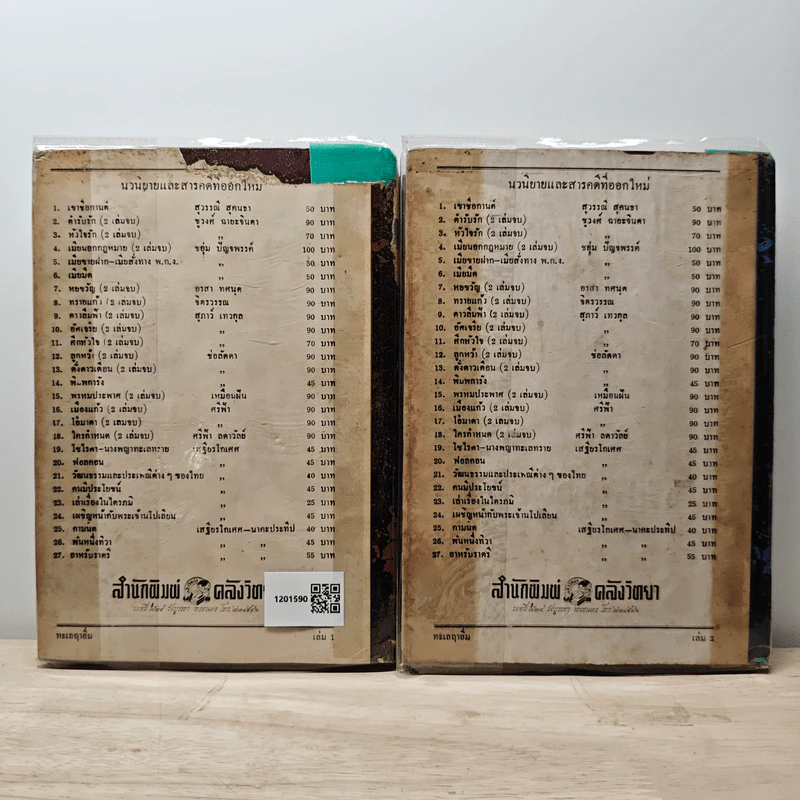 นวนิยายและสารคดีที่ออกใหม่
1. เขาชื่อกานต์ สุวรรณี สุคนธา 50 บาท
2. ตำรับรัก (2 เล่มจบ) ชูวงศ์ ฉายะจินดา 90 บาท
3. หัวใจรัก (2 เล่มจบ) ,, 70 บาท
4. เมียนอกกฎหมาย (2 เล่มจบ) ชอุ่ม ปัญจพรรค์ 100 บาท
5. เมียขายฝาก–เมียสั่งทาง พ.ก.ง. ,, 50 บาท
6. เมียมืด ,, 50 บาท
7. หอขวัญ (2 เล่มจบ) อรสา ทศนุต 90 บาท
8. ทรายแก้ว (2 เล่มจบ) จิตรวรรณ 90 บาท
9. ดาวลืมฟ้า (2 เล่มจบ) สุภาว์ เทวกุล 90 บาท
10. อัศเจรีย (2 เล่มจบ) ,, 90 บาท
11. ศึกหัวใจ (2 เล่มจบ) ,, 70 บาท
12. ลูกหว้า (2 เล่มจบ) ช่อลัดดา 90 บาท
13. ดั่งดาวเดือน (2 เล่มจบ) ,, 90 บาท
14. พิมพการัง ,, 45 บาท
15. พรหมประพาศ (2 เล่มจบ) เหมือนฝัน 90 บาท
16. เมืองแก้ว (2 เล่มจบ) ศรีฟ้า 90 บาท
17. โอ้มาดา (2 เล่มจบ) ,, 90 บาท
18. ใครกำหนด (2 เล่มจบ) ศรีฟ้า ลดาวัลย์ 90 บาท
19. โซไรดา–นางพญาทะเลทราย เสฐียรโกเศศ 45 บาท
20. ฟอลคอน ,, 45 บาท
21. วัฒนธรรมและประเพณีต่าง ๆ ของไทย ,, 40 บาท
22. คนมีประโยชน์ ,, 45 บาท
23. เล่าเรื่องในไตรภูมิ ,, 25 บาท
24. เผชิญหน้ากับพระเจ้านโปเลียน ,, 45 บาท
25. กามนิต เสฐียรโกเศศ–นาคะประทีป 40 บาท
26. พันหนึ่งทิวา ,, ,, 45 บาท
27. อาหรับราตรี ,, ,, 55 บาท
สำนักพิมพ์ คลังวิทยา
1201590
ทะเลฤาอิ่ม เล่ม 1
นวนิยายและสารคดีที่ออกใหม่
1. เขาชื่อกานต์ สุวรรณี สุคนธา 50 บาท
2. ตำรับรัก (2 เล่มจบ) ชูวงศ์ ฉายะจินดา 90 บาท
3. หัวใจรัก (2 เล่มจบ) ,, 70 บาท
4. เมียนอกกฎหมาย (2 เล่มจบ) ชอุ่ม ปัญจพรรค์ 100 บาท
5. เมียขายฝาก–เมียสั่งทาง พ.ก.ง. ,, 50 บาท
6. เมียมืด ,, 50 บาท
7. หอขวัญ (2 เล่มจบ) อรสา ทศนุต 90 บาท
8. ทรายแก้ว (2 เล่มจบ) จิตรวรรณ 90 บาท
9. ดาวลืมฟ้า (2 เล่มจบ) สุภาว์ เทวกุล 90 บาท
10. อัศเจรีย (2 เล่มจบ) ,, 90 บาท
11. ศึกหัวใจ (2 เล่มจบ) ,, 70 บาท
12. ลูกหว้า (2 เล่มจบ) ช่อลัดดา 90 บาท
13. ดั่งดาวเดือน (2 เล่มจบ) ,, 90 บาท
14. พิมพการัง ,, 45 บาท
15. พรหมประพาศ (2 เล่มจบ) เหมือนฝัน 90 บาท
16. เมืองแก้ว (2 เล่มจบ) ศรีฟ้า 90 บาท
17. โอ้มาดา (2 เล่มจบ) ,, 90 บาท
18. ใครกำหนด (2 เล่มจบ) ศรีฟ้า ลดาวัลย์ 90 บาท
19. โซไรดา–นางพญาทะเลทราย เสฐียรโกเศศ 45 บาท
20. ฟอลคอน ,, 45 บาท
21. วัฒนธรรมและประเพณีต่าง ๆ ของไทย ,, 40 บาท
22. คนมีประโยชน์ ,, 45 บาท
23. เล่าเรื่องในไตรภูมิ ,, 25 บาท
24. เผชิญหน้ากับพระเจ้านโปเลียน ,, 45 บาท
25. กามนิต เสฐียรโกเศศ–นาคะประทีป 40 บาท
26. พันหนึ่งทิวา ,, ,, 45 บาท
27. อาหรับราตรี ,, ,, 55 บาท
สำนักพิมพ์ คลังวิทยา
ทะเลฤาอิ่ม เล่ม 2